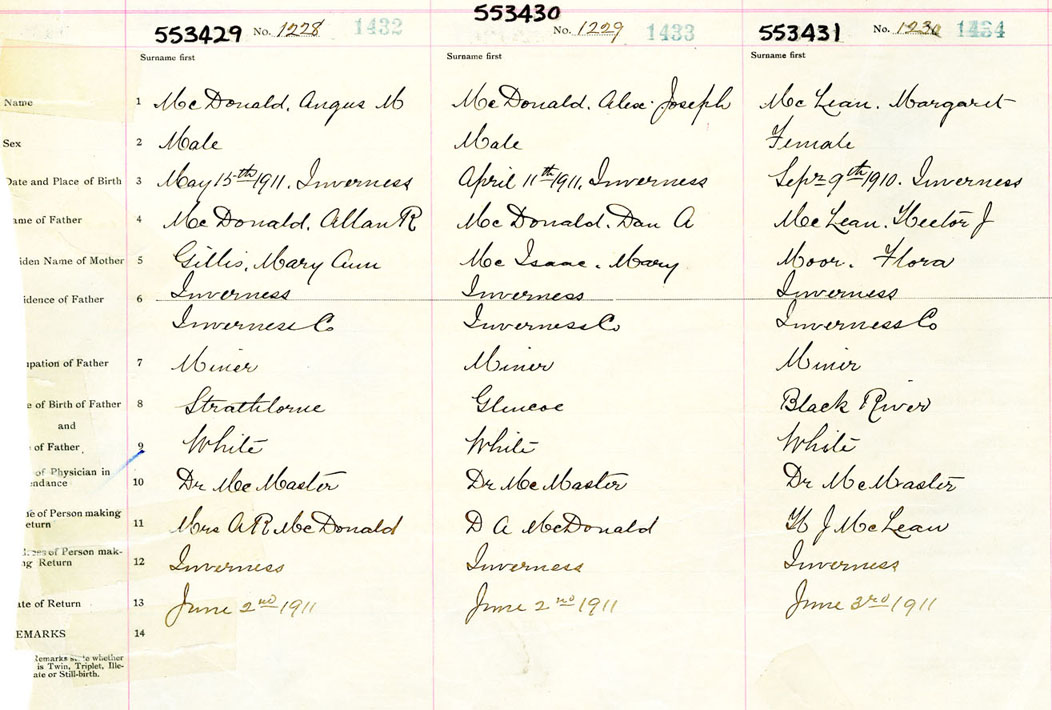 553429 No. 1228 1432
553430 No. 1229 1433
553431 No. 1230 1434
Surname first Surname first Surname first
Name 1 McDonald, Angus M McDonald, Alex. Joseph McLean, Margaret
Sex 2 Male Male Female
Date and Place of Birth 3 May 15th 1911, Inverness April 11th 1911, Inverness Sept 9th 1910. Inverness
ame of Father 4 McDonald, Allan R McDonald, Dan A McLean, Hector J
iden Name of Mother 5 Gillis, Mary Ann McIsaac, Mary Moor, Flora
idence of Father 6 Inverness Inverness Inverness
Inverness Co Inverness Co Inverness Co
upation of Father 7 Miner Miner Miner
e of Birth of Father 8 Strathlorne Glencoe Black River
and
of Father 9 White White White
of Physician in
endance 10 Dr McMaster Dr McMaster Dr McMaster
e of Person making
eturn 11 Mrs A R McDonald D A McDonald H J McLean
ess of Person mak-
ng Return 12 Inverness Inverness Inverness
ate of Return 13 June 2nd 1911 June 2nd 1911 June 3rd 1911
EMARKS 14
Remarks state whether
is Twin, Triplet, Ille-
ate or Still-birth.